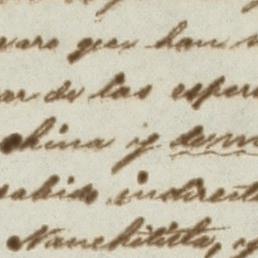 que han
ar de las esper
china y dem
sabido indirect
Nanchititla, y